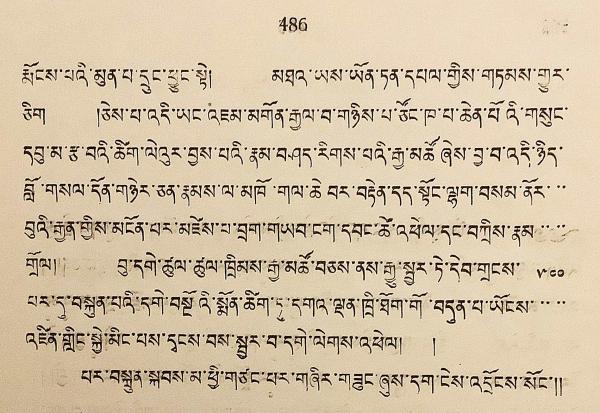 486
རྨོངས་པའི་མུན་པ་དྲུང་ཕྱུང་སྟེ། མཐའ་ཡས་ཡོན་ཏན་དཔལ་གྱིས་གཏམས་གྱུར་
ཅིག །ཅེས་པ་འདི་ཡང་འཇམ་མགོན་རྒྱལ་བ་གཉིས་པ་ཙོང་ཁ་པ་ཆེན་པོ་འི་གསུང་
དབུ་མ་རྩ་བའི་ཚིག་ལེའུར་བྱས་པའི་རྣམ་བཤད་རིགས་པའི་རྒྱ་མཚོ་ཞེས་བྱ་བ་འདི་ཉིད་
བློ་གསལ་དོན་གཉེར་ཅན་རྣམས་ལ་མཁོ་གལ་ཆེ་བར་བརྟེན་དད་སྟོང་ལྷག་བསམ་ནོར་
བུའི་རྒྱན་གྱིས་མངོན་པར་མཛེས་པ་བྲག་གཡབ་ངག་དབང་ཚེ་འཕེལ་དང་བཀྲིས་རྣམ་
གྲོལ།། བུ་དགེ་ཚུལ་ཚུལ་ཁྲིམས་རྒྱ་མཚོ་བཅས་ནས་རྒྱུ་སྦྱར་ཏེ་དེབ་གྲངས་ ༧༠༠
པར་དུ་བསྐྲུན་པའི་དགེ་བསྔོ་འི་སྨོན་ཚིག་ཏུ་དགའ་ལྡན་ཁྲི་ཐོག་གོ་བདུན་པ་ཡོངས་
འཛིན་གླིང་སྤྱི་མིང་པས་དྭངས་བས་སྦྱར་བ་དགེ་ལེགས་འཕེལ། །
པར་བསྐྲུན་སྐབས་མ་ཕྱི་གཙང་པར་གཞིར་གཟུང་ཞུས་དག་ངེས་འདྲོངས་སོང་།།